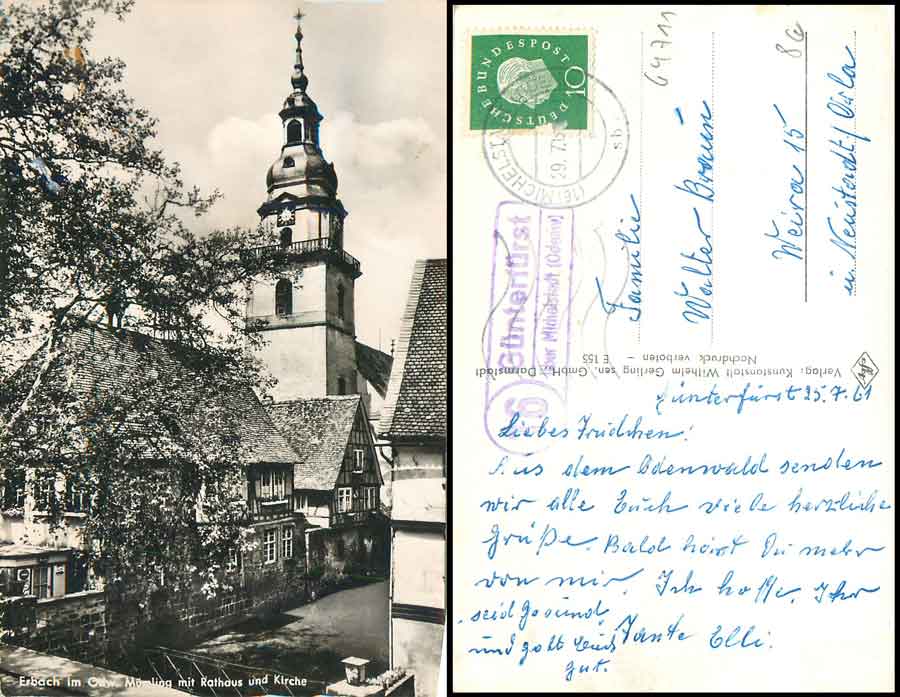 Erbach im Odw. Mümling mit Rathaus und Kirche
DEUTSCHE BUNDESPOST
10
(16) MICHELSTADT
29.7.
sb
16
Günterfürst
über Michelstadt (Odenw)
64711
86
Familie
Walter Braun
Weira 15
in Neustadt/Orla
Verlag: Kunstanstalt Wilhelm Gerling sen. GmbH. Darmstadt
Nachdruck verboten – E 155
Günterfürst 25.7.61
Liebes Trudchen!
Aus dem Odenwald senden
wir alle Euch viele herzliche
Grüße. Bald hörst Du mehr
von mir. Ich hoffe, Ihr
seid gesund
und geht Euch
gut.
Tante Elli.